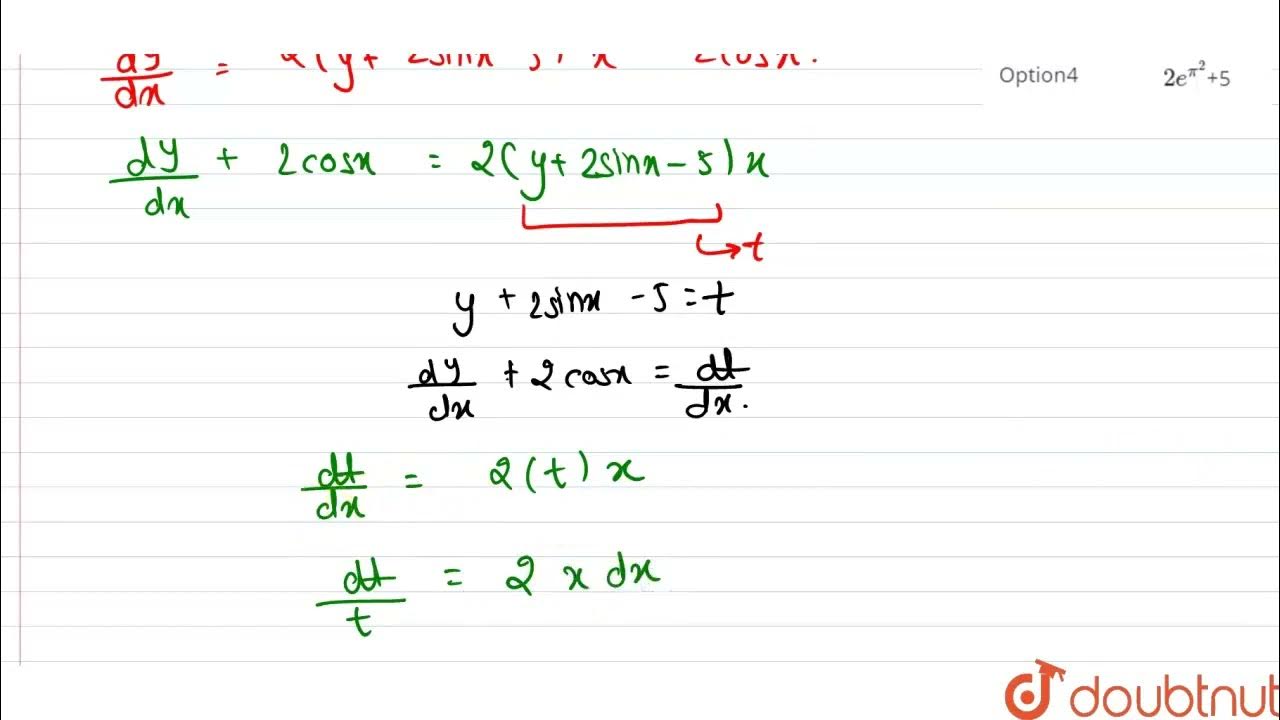 dy/dx = 2(y+ 2sinx 5) x 2cosx.
Option4 2e^π^2+5
dy/dx + 2cosx = 2(y+2sinx-5)x
↳t
y + 2sinx - 5 = t
dy/dx + 2cosx = dt/dx.
dt/dx = 2(t)x
dt/t = 2 x dx
doubtnut